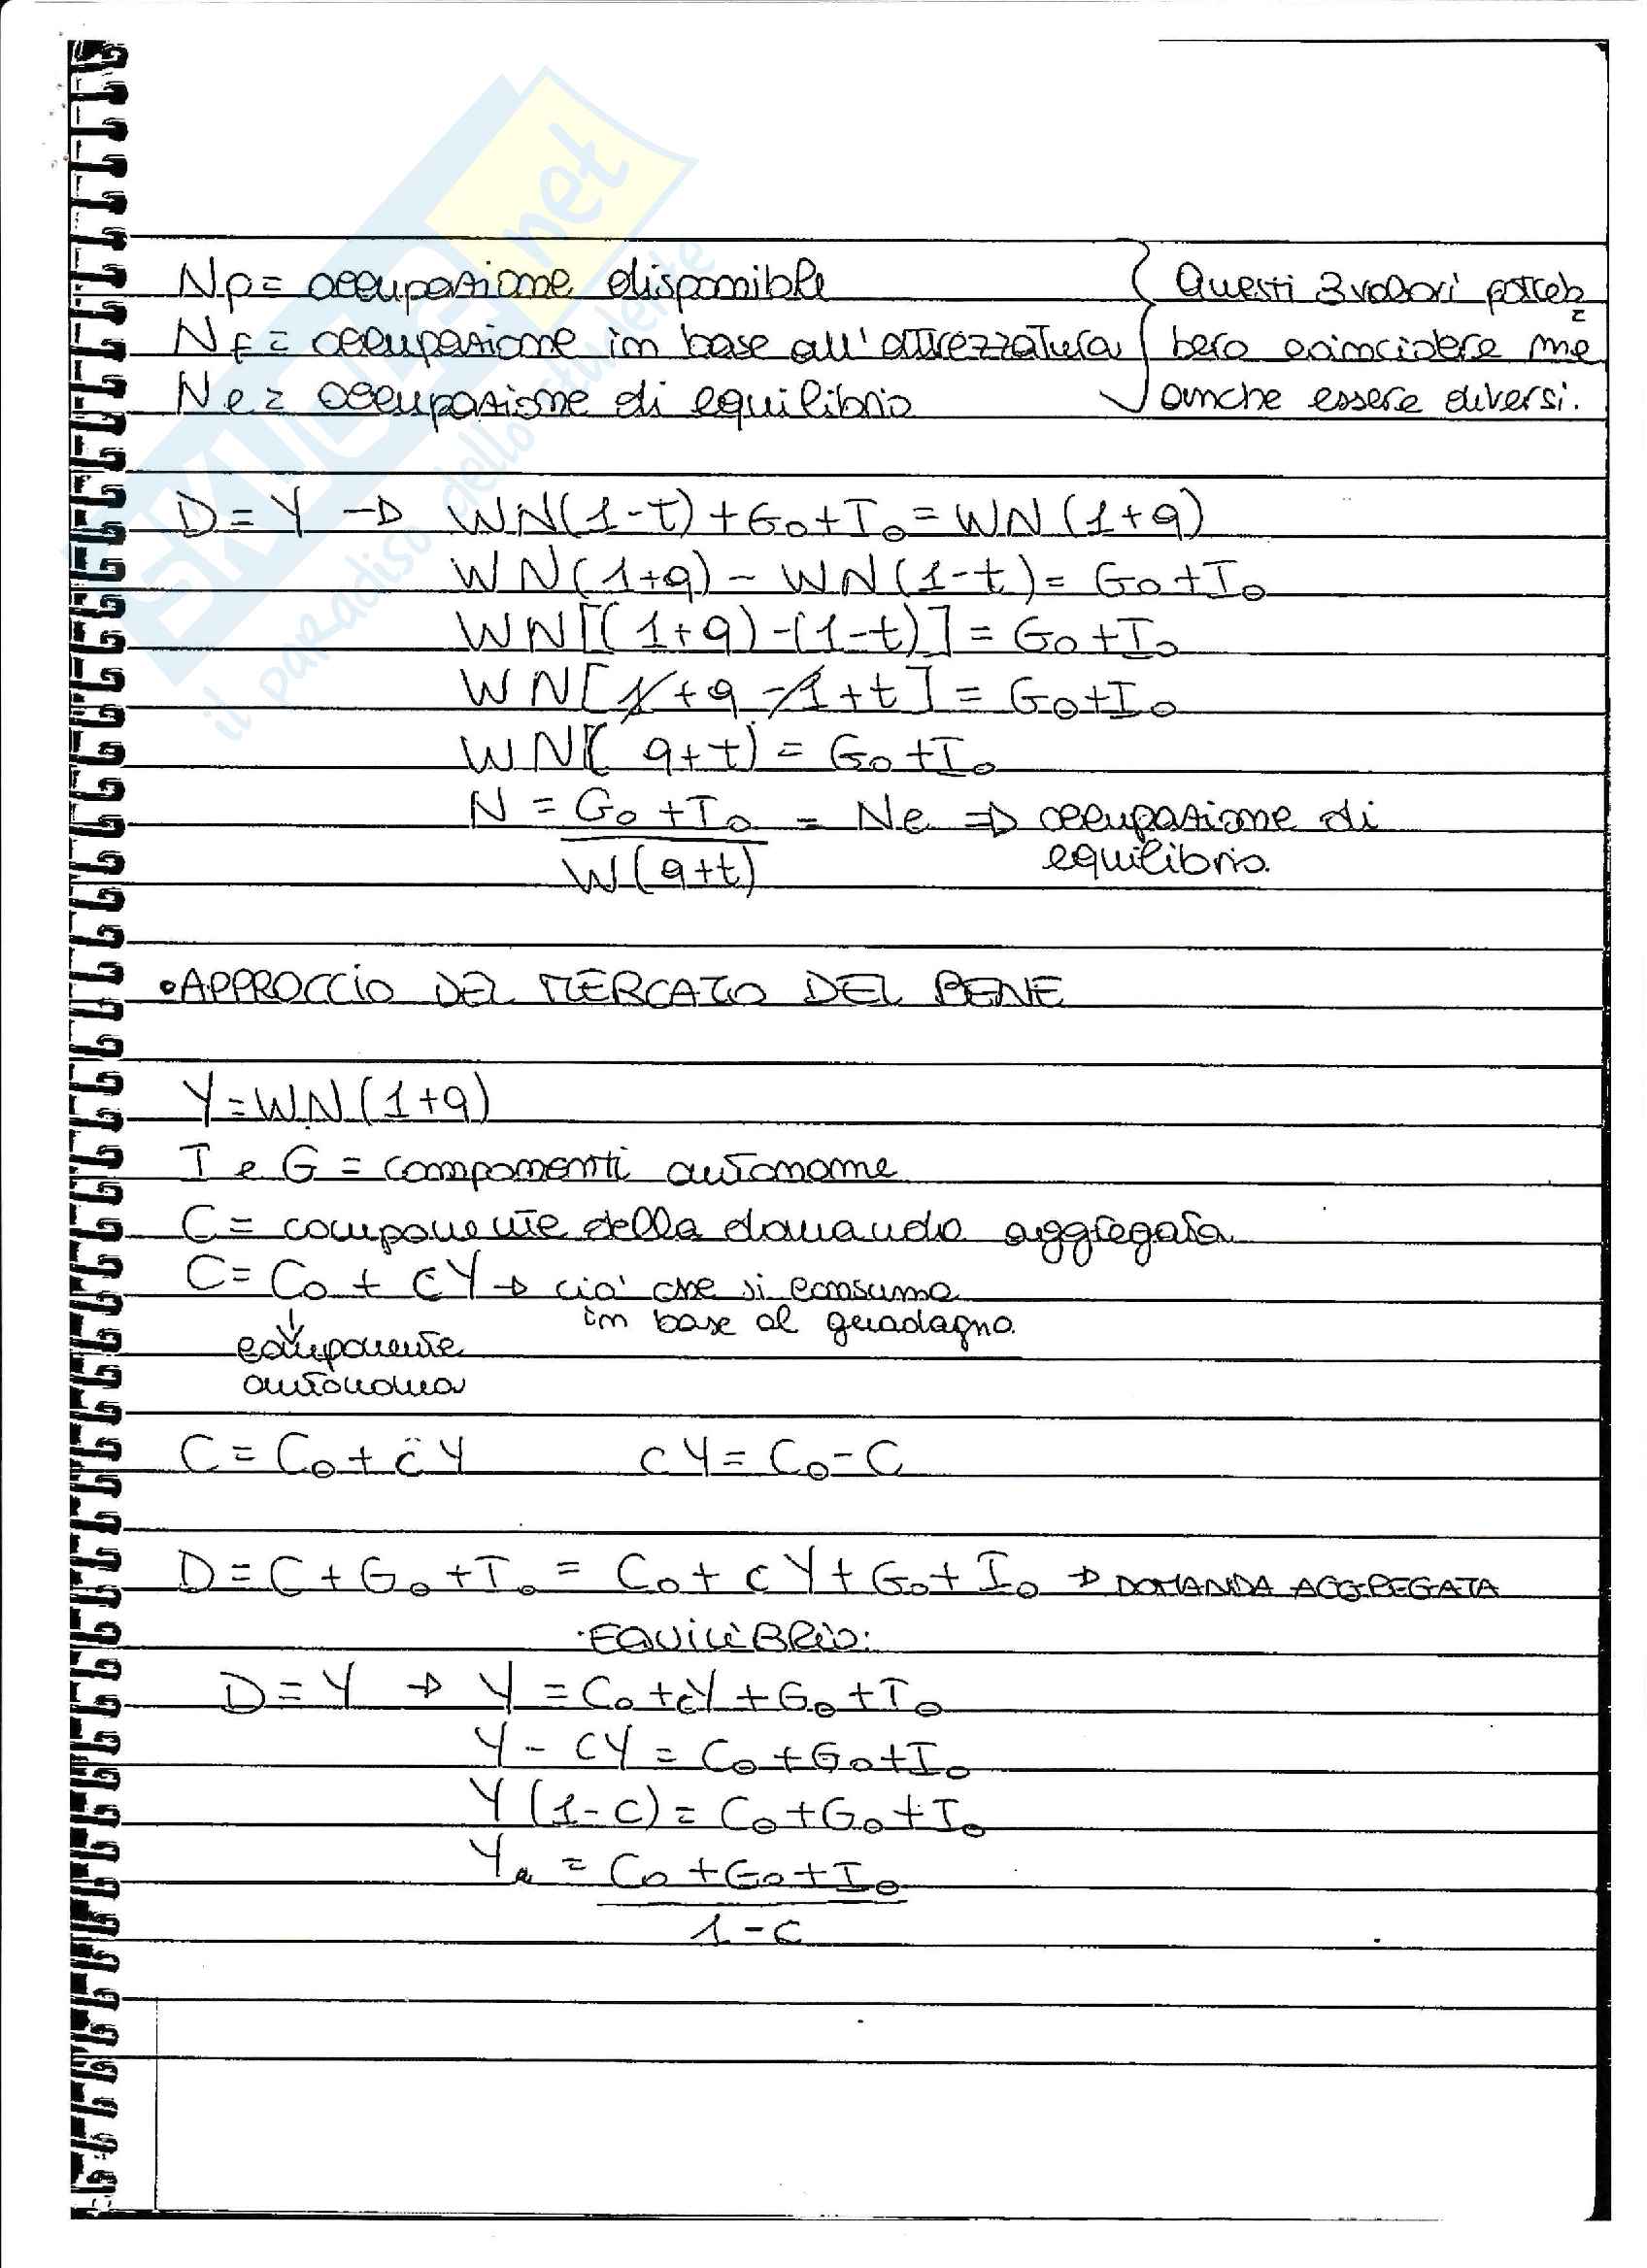 SKUOLA.net
il paradiso dello studente
Np = occupazione disponibile
Nf = occupazione in base all'attrezzatura
Ne = occupazione di equilibrio
Questi 3 valori potreb=
bero coincidere ma
anche essere diversi.
D = Y → WN(1-t) + G₀ + I₀ = WN(1+q)
WN(1+q) - WN(1-t) = G₀ + I₀
WN[(1+q) - (1-t)] = G₀ + I₀
WN[1+q-1+t] = G₀ + I₀
WN(q+t) = G₀ + I₀
N = G₀ + I₀ = Ne ⇒ occupazione di
equilibrio.
W(q+t)
• APPROCCIO DEL MERCATO DEL BENE
Y = WN(1+q)
I e G = componenti autonome
C = componente della domanda aggregata
C = C₀ + cY → cio' che si consuma
in base al guadagno.
↓
componente
autonoma
C = C₀ + cY cY = C₀ - C
D = C + G₀ + I₀ = C₀ + cY + G₀ + I₀ → DOMANDA AGGREGATA
EQUILIBRIO:
D = Y → Y = C₀ + cY + G₀ + I₀
Y - cY = C₀ + G₀ + I₀
Y(1-c) = C₀ + G₀ + I₀
Ye = C₀ + G₀ + I₀
1-c